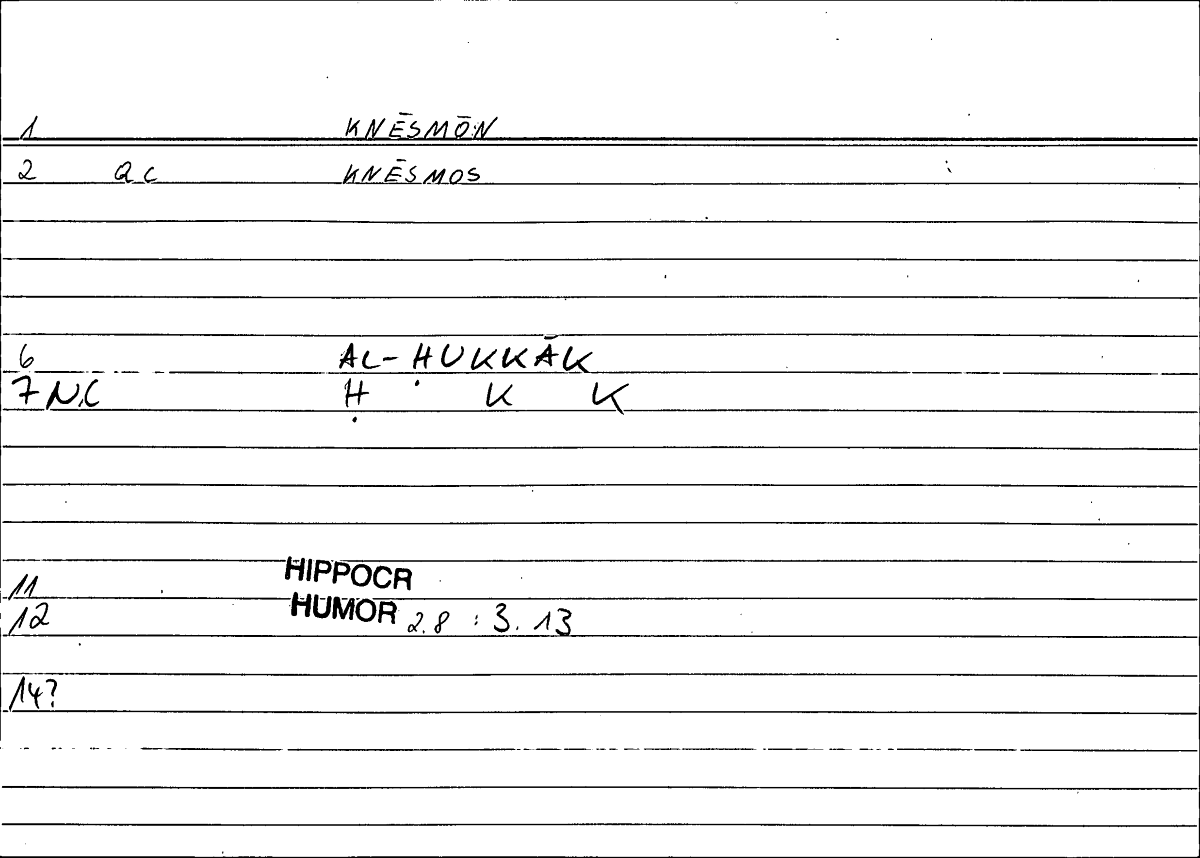 1 KNĒSMŌN
2 QC KNĒSMOS
6 AL-ḤUKKĀK
7 N.C Ḥ K K
11 HIPPOCR
12 HUMOR 2.8 : 3. 13
14?